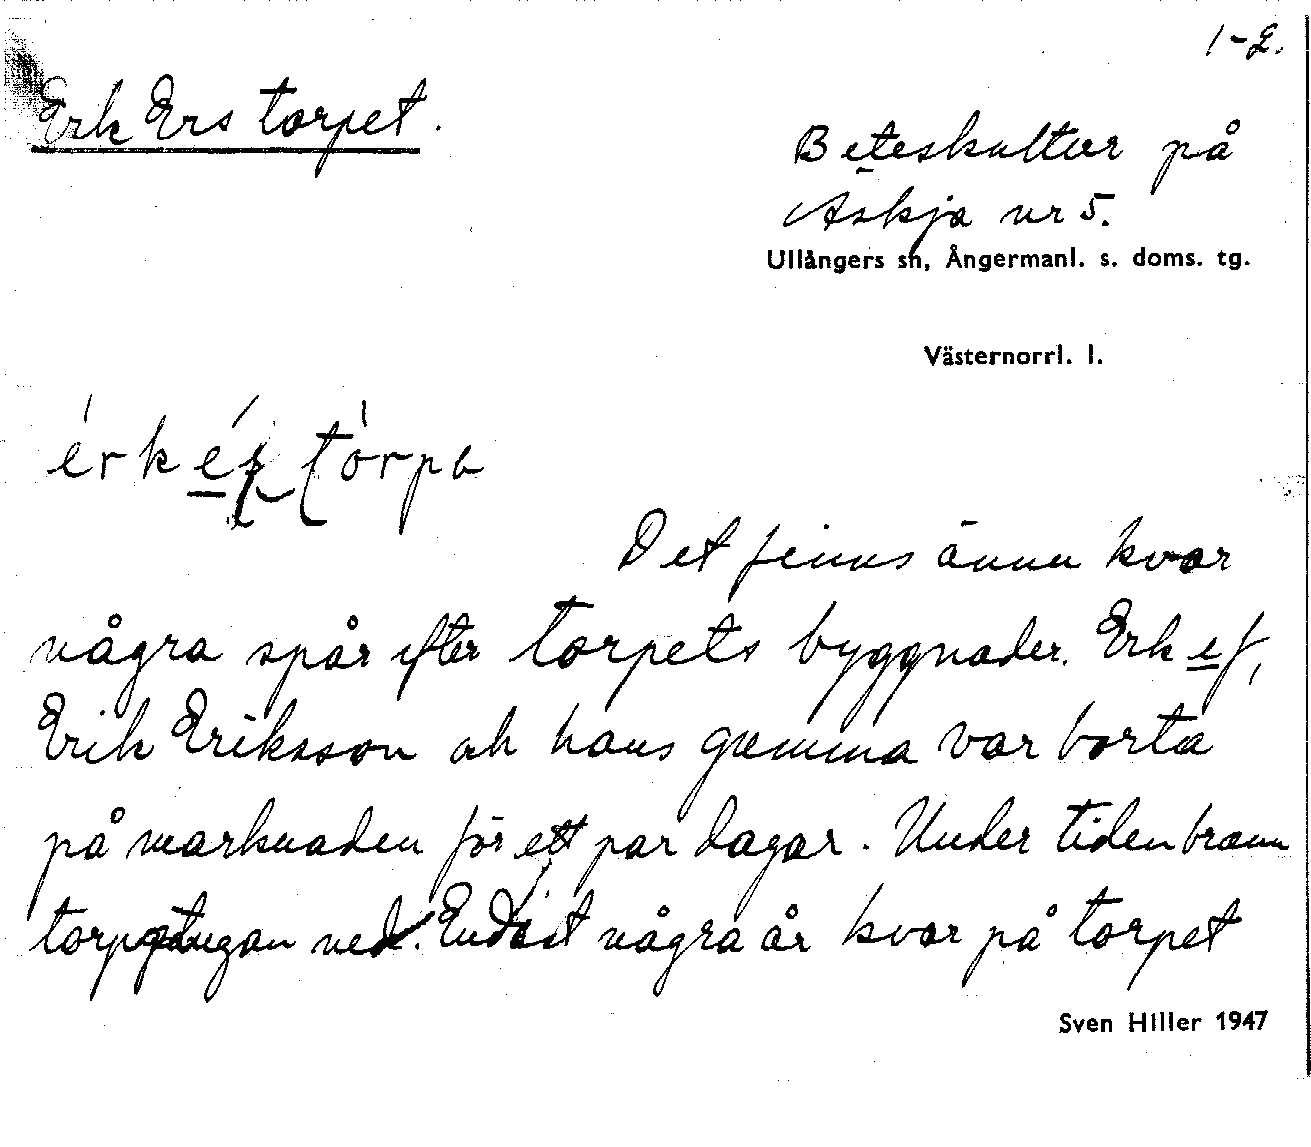 1-2.
Erk Ers torpet.
Beteskultur på
Äskja nr 5.
Ullångers sn, Ångermanl. s. doms. tg.
Västernorrl. l.
Det finns ännu kvar
några spår efter torpets byggnader. Erk
Erik Eriksson och hans gumma var borta
på marknaden för ett par dagar. Under tiden brann
torpstugan ned. Endast några år kvar på torpet
Sven Hiller 1947